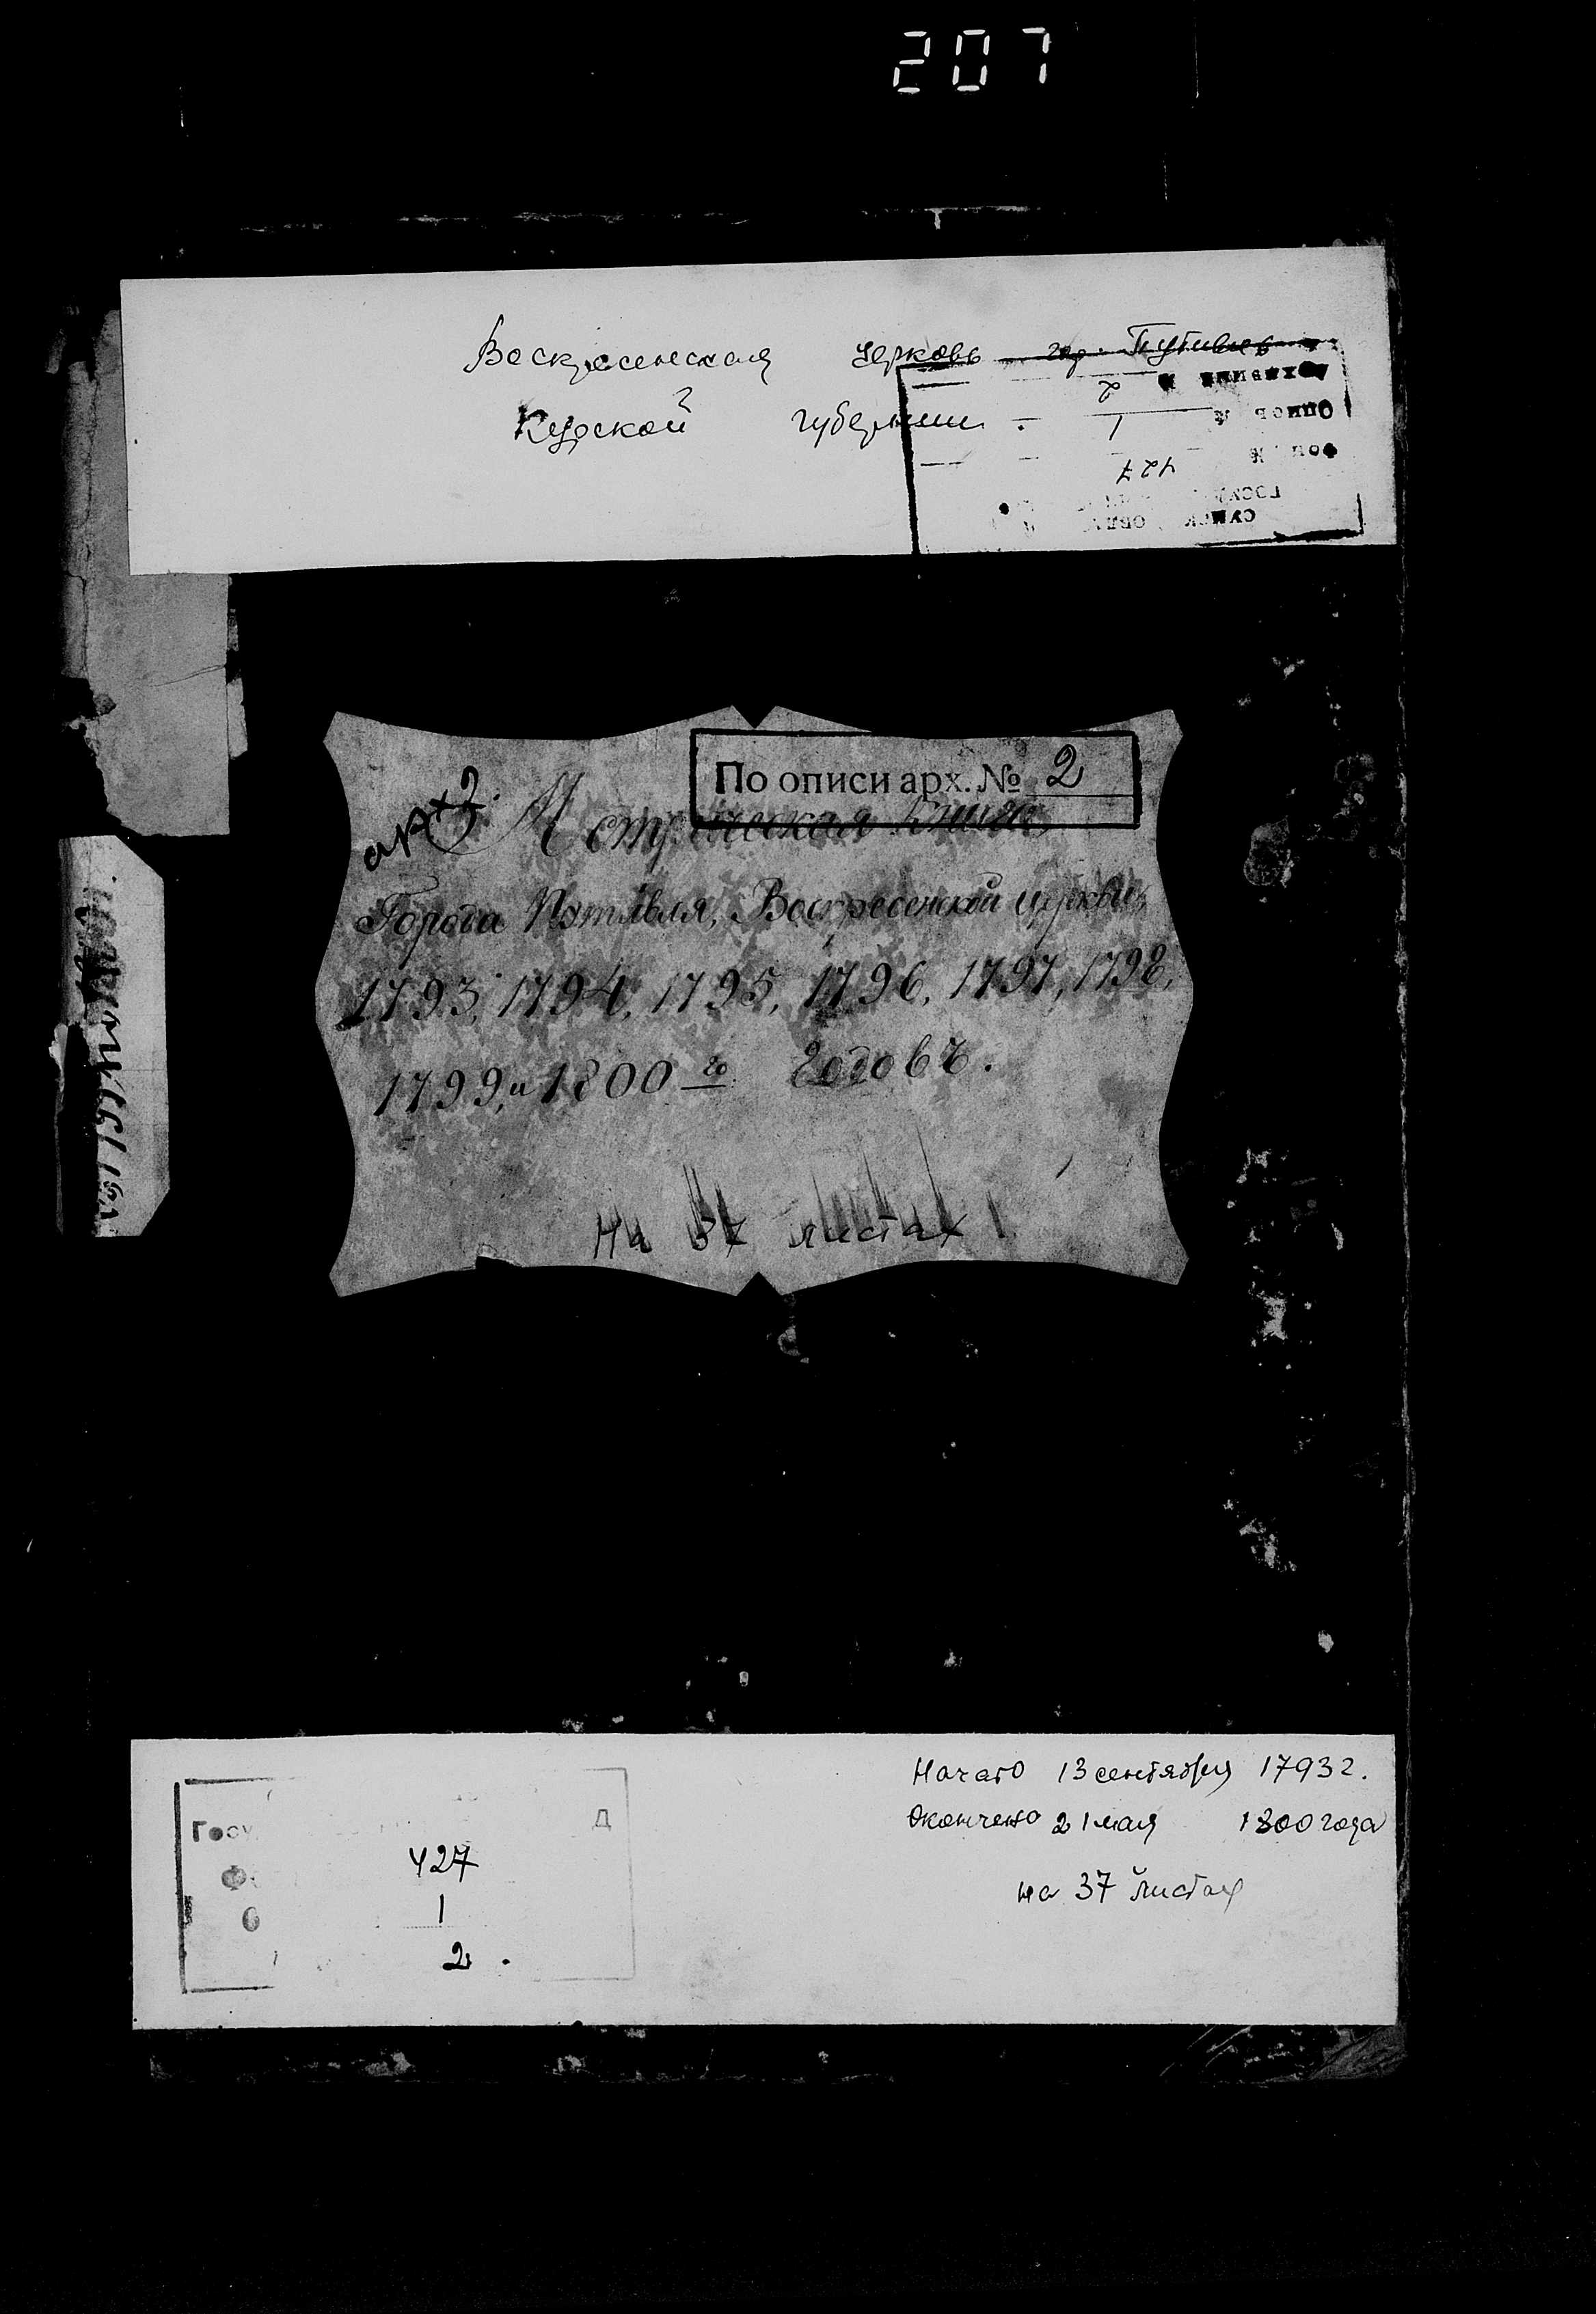 207
Воскресенская церковь гор. Путивль
Курской губернии.
Архивный № 2
Опись № 1
Фонд № 427
По описи арх. № 2
Метрическая Книга
Города Путивля, Воскресенской церкви,
1793, 1794, 1795, 1796, 1797, 1798,
1799, и 1800 го годовъ.
На 37 листах
Начато 13 сентября 1793 г.
Окончено 21 мая 1800 года
на 37 листах
427
1
2.